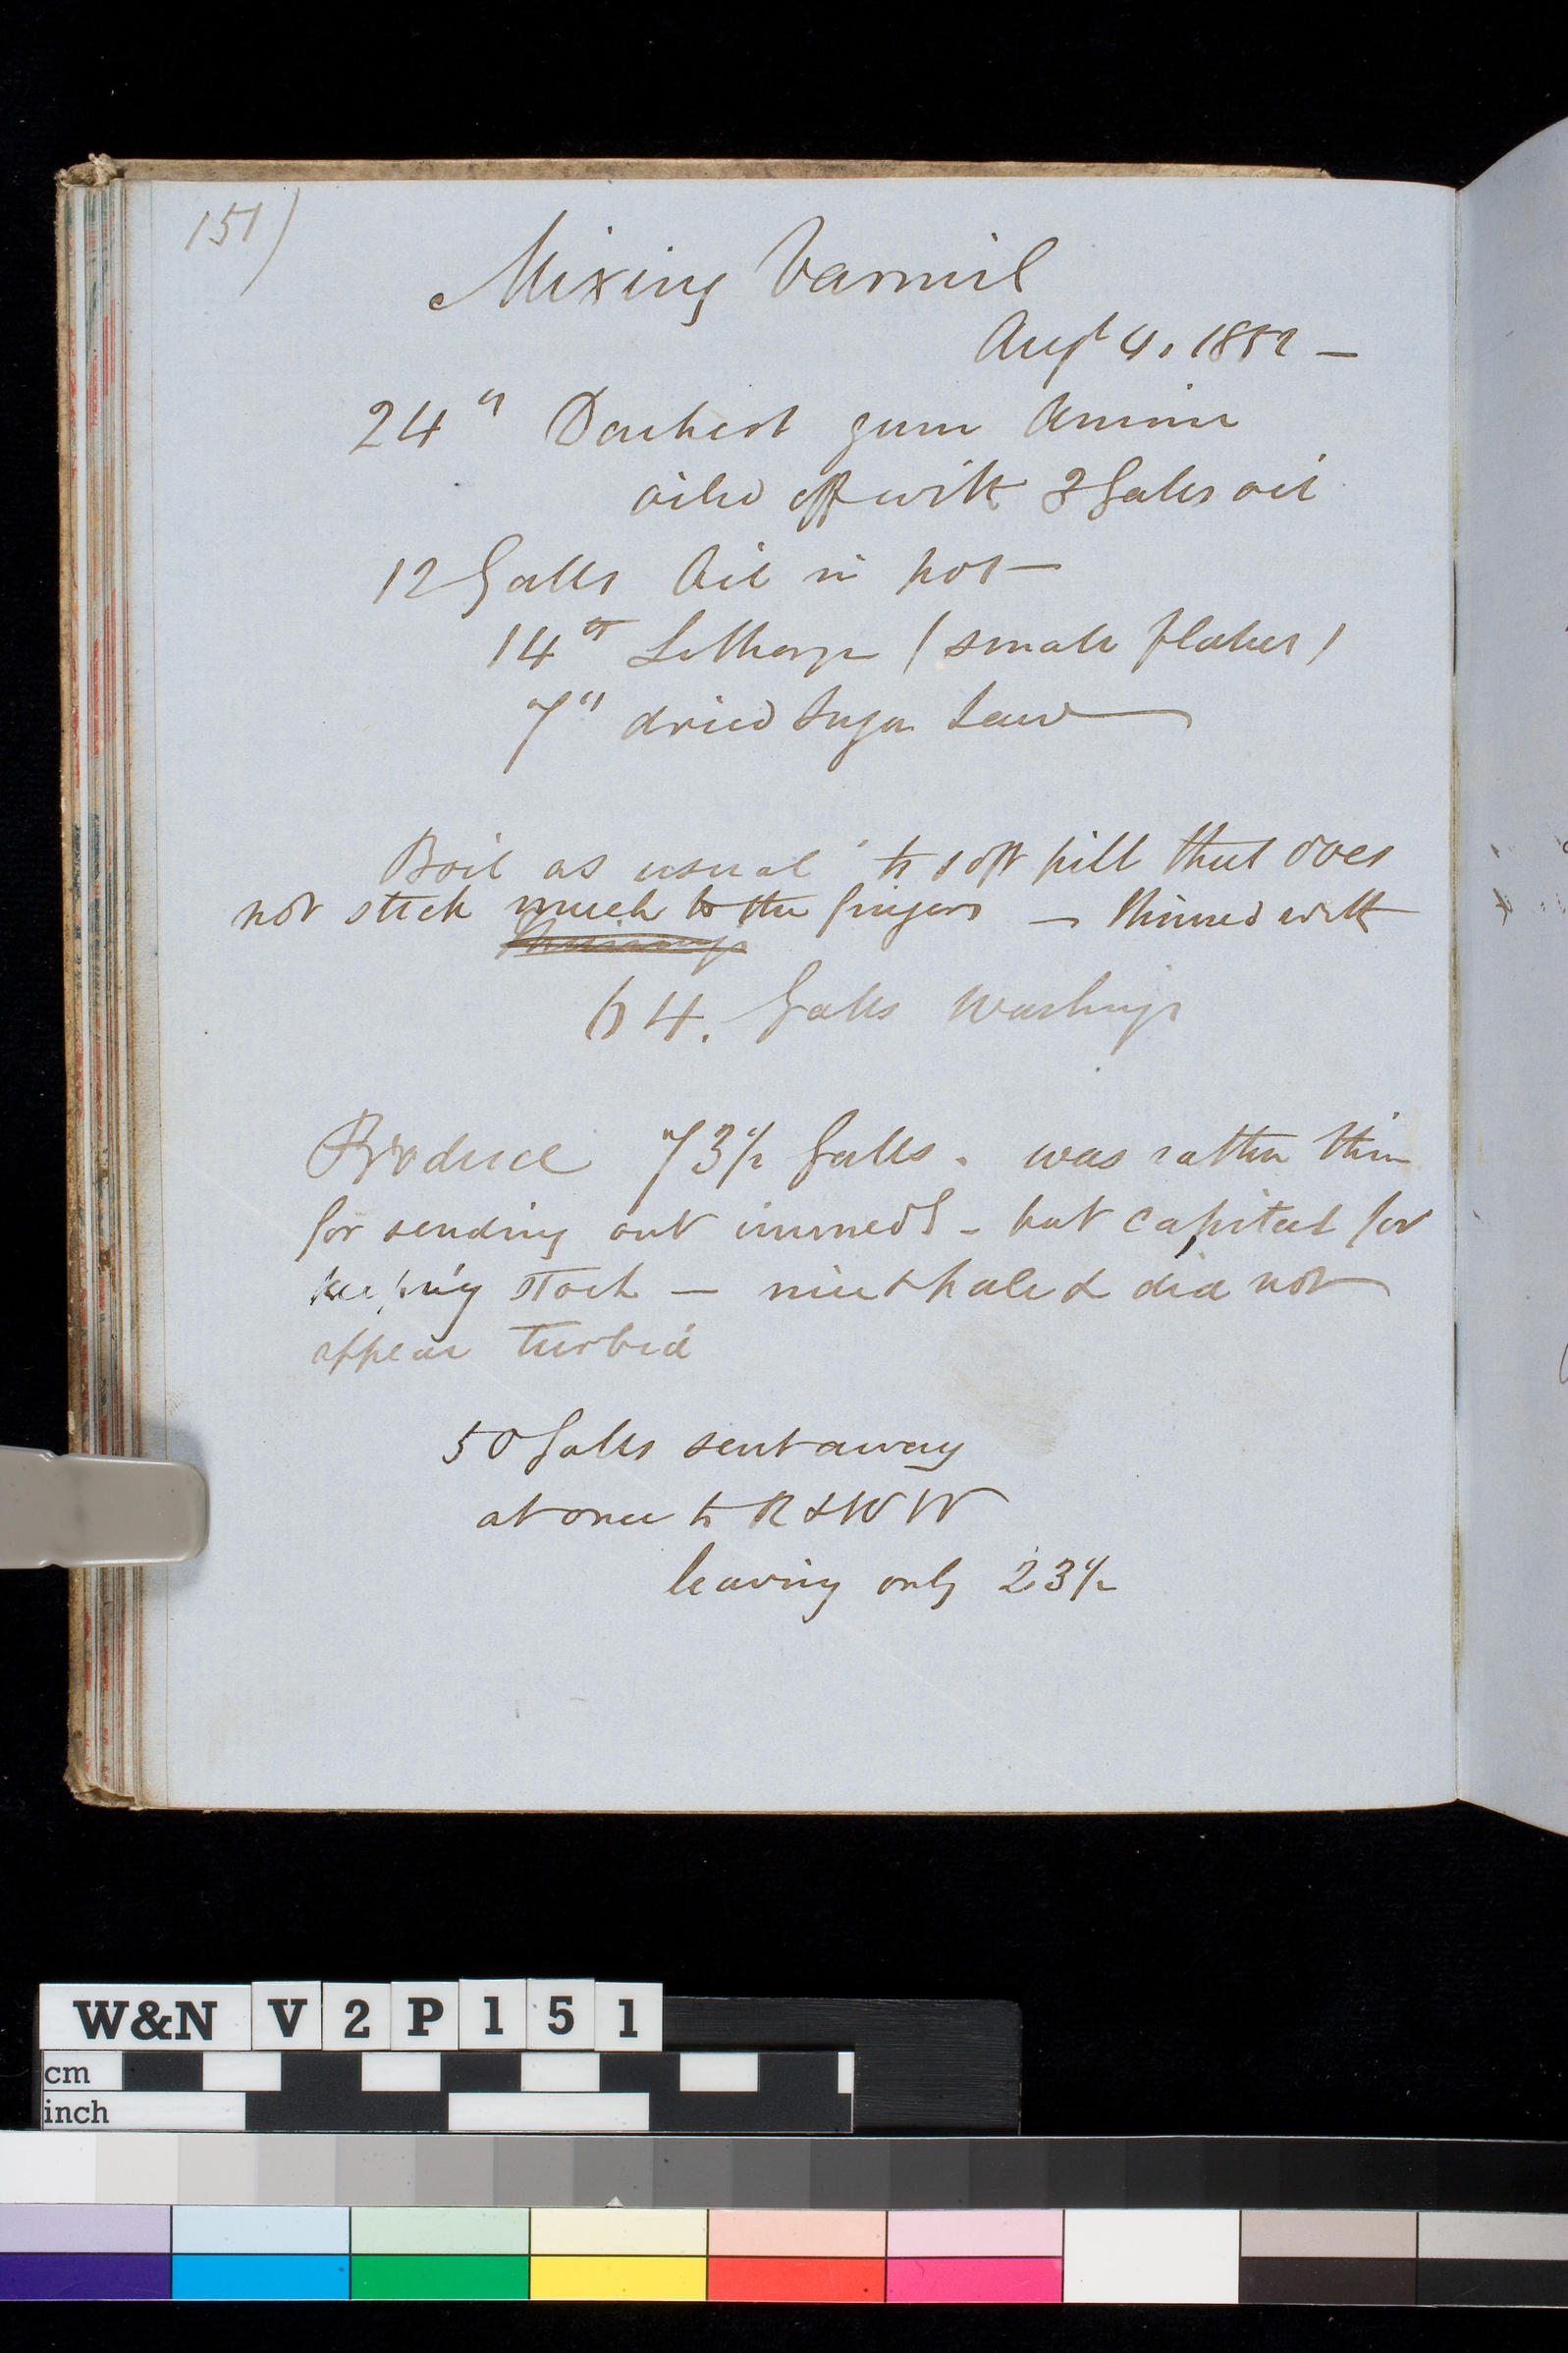 151)
Mixing Varnish
Augt 4. 1852 —
24 " Darkest gum Animi
oiled off with 3 Galls oil
12 Galls Oil in pot —
14 " Litharge (small flakes)
7 " dried Sugar Lead
Boil as usual to soft pill that does
not stick much to the fingers — thinned with
64. Galls Washings
Produce 73 1/2 Galls. was rather thin
for sending out immedy - but capital for
keeping stock — nice & pale & did not
appear turbid
50 Galls sent away
at once to R & W W
leaving only 23 1/2
W&N V 2 P 1 5 1
cm
inch